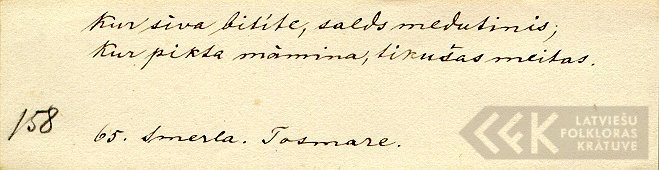 Kur sīva bitīte, salds medutiņis;
Kur pikta māmiņa, tikušas meitas.
158
65. Smerla. Tosmare.
LATVIEŠU
FOLKLORAS
KRĀTUVE